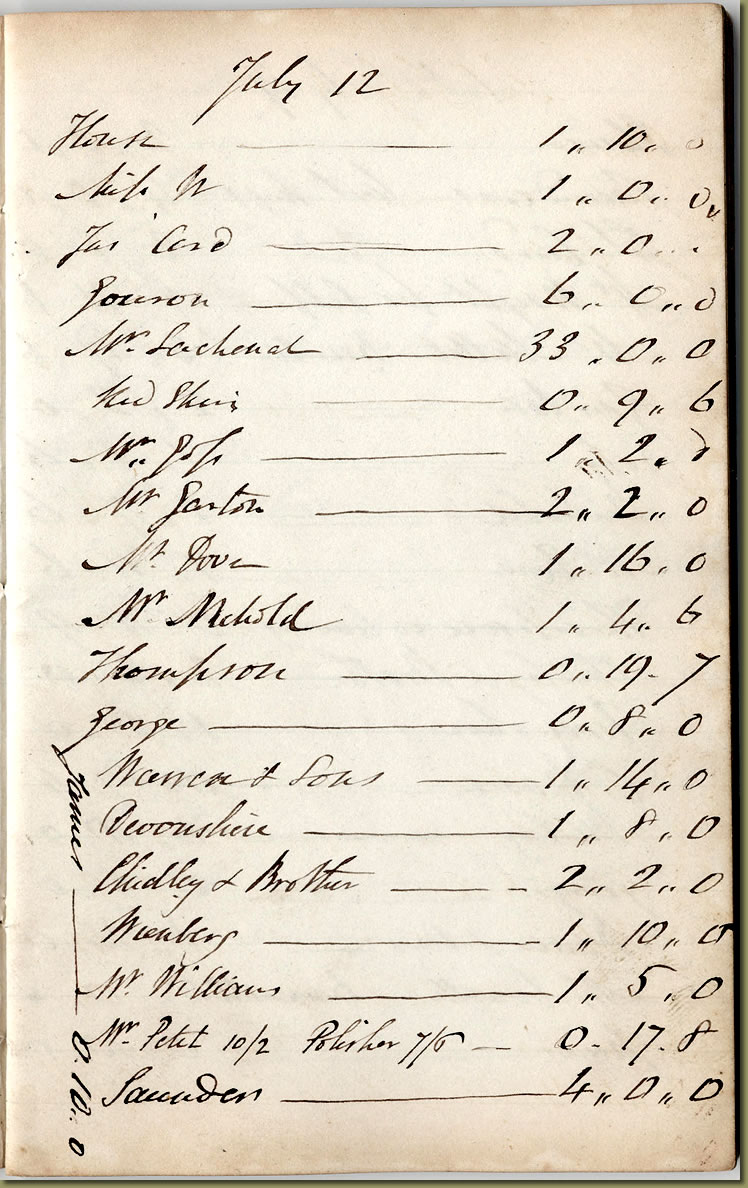 July 12
House — 1 „ 10 „ 0
Miss W 1 „ 0 „ 0
Jas Card — 2 „ 0 „
— 6 „ 0 „ 0
Mr. Lachenal — 33 „ 0 „ 0
— 0 „ 9 „ 6
Mr. — 1 „ 2 „ 0
Mr Garton — 2 „ 2 „ 0
Mr. Dove 1 „ 16 „ 0
Mr Nickold 1 „ 4 „ 6
Thompson — 0 „ 19 - 7
George — 0 „ 8 „ 0
Warren & Sons — 1 „ 14 „ 0
Devonshire — 1 „ 8 „ 0
Chidley & Brother — 2 „ 2 „ 0
— 1 „ 10 „ 0
Mr. Williams — 1 „ 5 „ 0
Mr. Petit 10/2 Polisher 7/6 — 0 - 17 - 8
Saunders — 4 „ 0 „ 0
James — 0 „ 10 „ 0